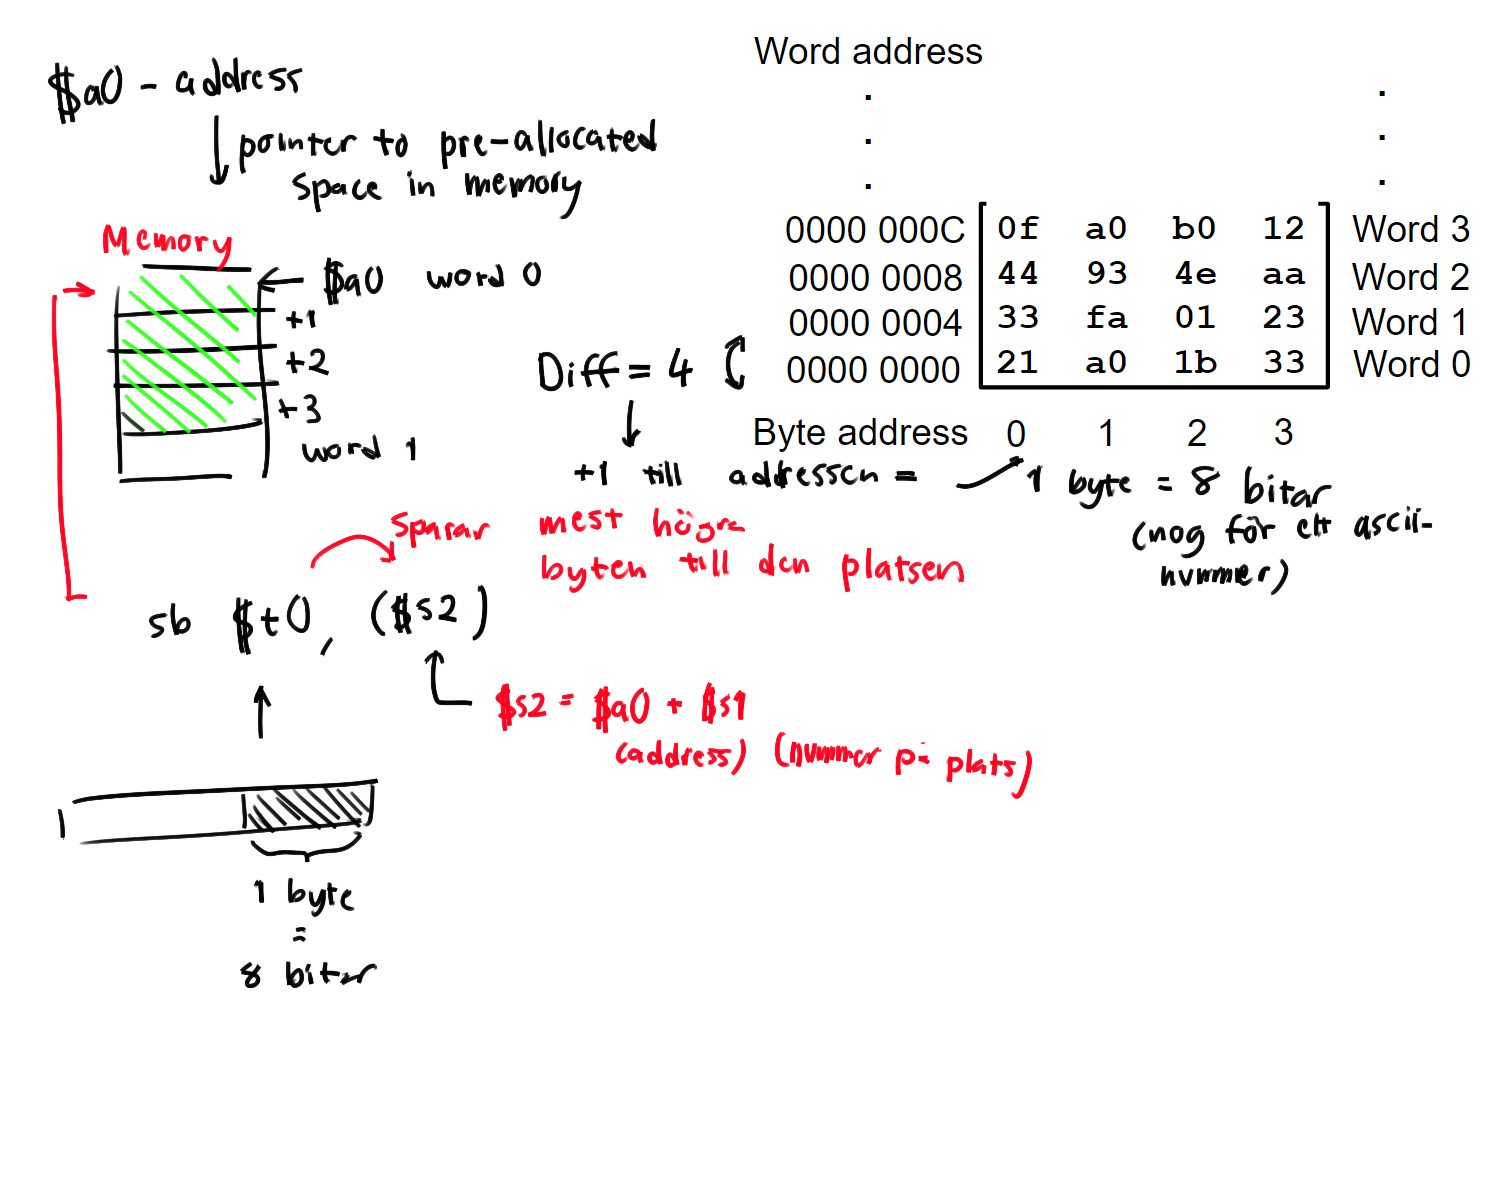 $a0 - address
pointer to pre-allocated
space in memory
Memory
$a0 word 0
+1
+2
+3
word 1
Word address
0000 000C 0f a0 b0 12 Word 3
0000 0008 44 93 4e aa Word 2
0000 0004 33 fa 01 23 Word 1
0000 0000 21 a0 1b 33 Word 0
Diff = 4
Byte address 0 1 2 3
+1 till addressen = 1 byte = 8 bitar
(nog för ett ascii-
nummer)
sparar mest högre
byten till den platsen
sb $t0, ($s2)
$s2 = $a0 + $s1
(address) (nummer på plats)
1 byte
=
8 bitar